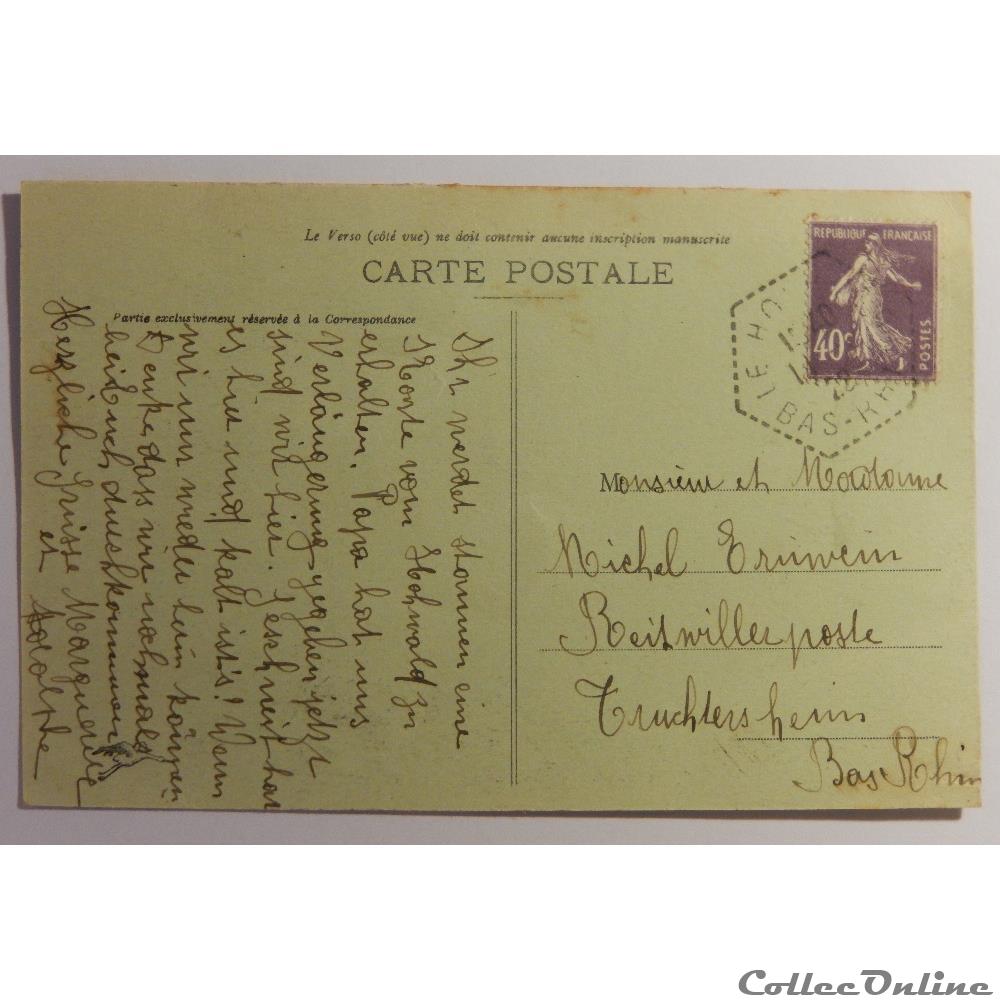 Le Verso (côté vue) ne doit contenir aucune inscription manuscrite
CARTE POSTALE
Partie exclusivement réservée à la Correspondance
REPUBLIQUE FRANÇAISE
40c
POSTES
BAS-RH
Ihr werdet staunen eine
Karte vom Hochwald zu
erhalten. Papa hat uns
Verlängerung gegeben jetzt
sind wir hier. Geschneit hat
es hier und kalt ists! Wenn
wir nur wieder heim können
Denke dass wir nochmals
bei Euch durchkommen
Herzliche Grüsse Marguerite
et
Monsieur et Madame
Michel Erwein
Reitwiller poste
Truchtersheim
Bas Rhin
CollecOnline